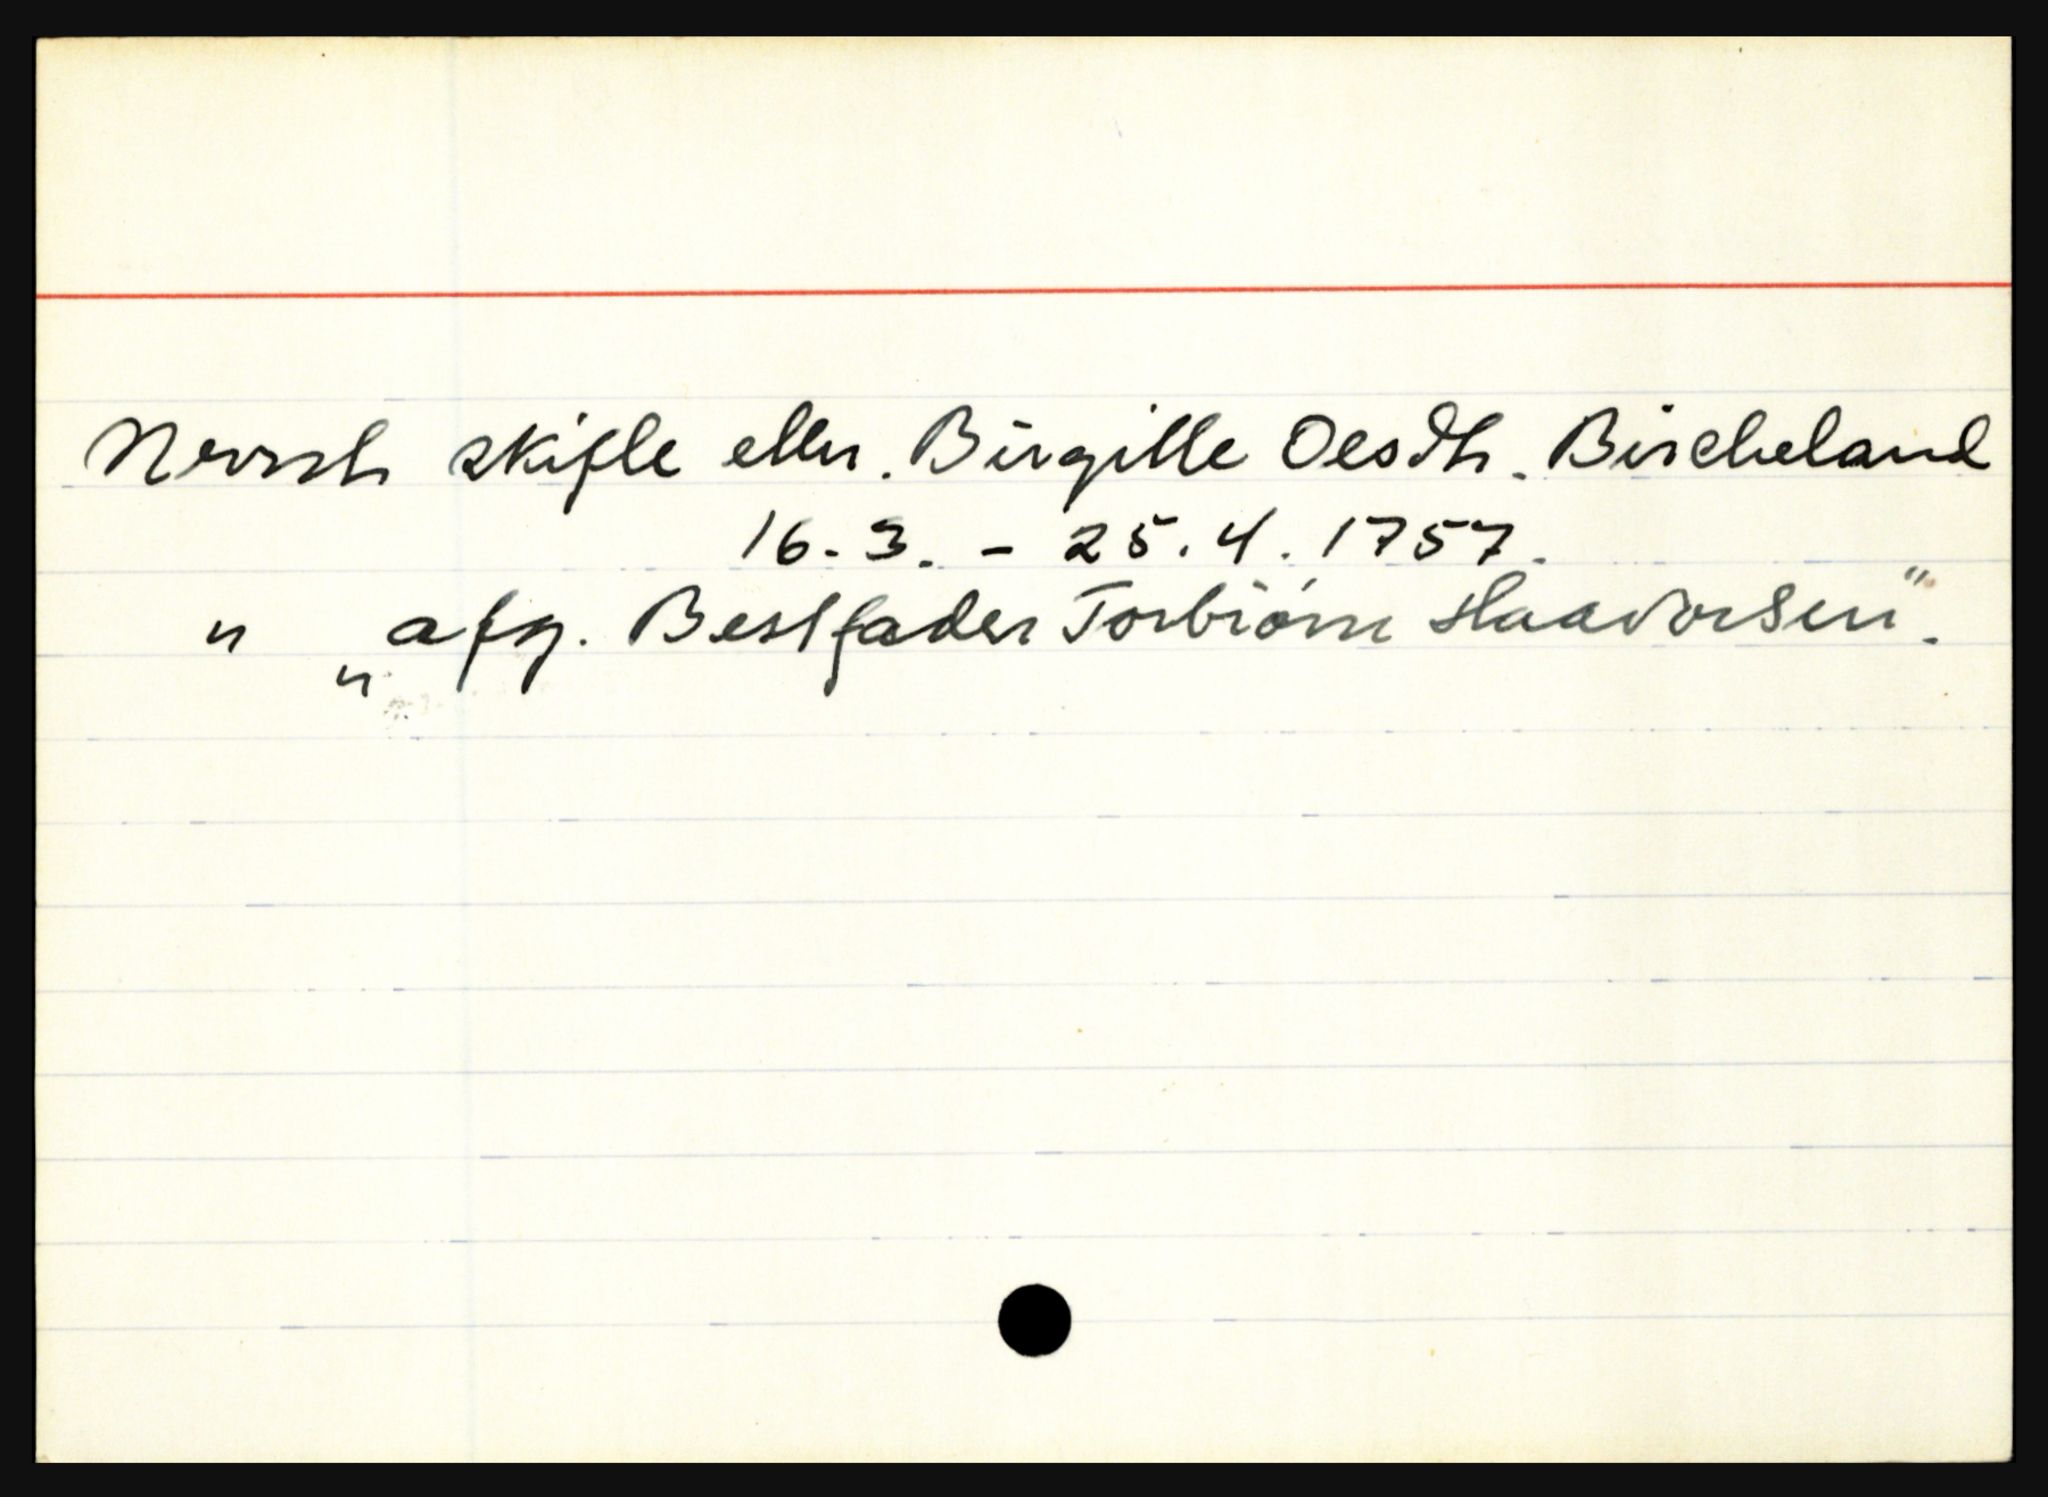 Nevnt skifte etter. Birgitte Olsdtr. Bircheland
16. 3. - 25. 4. 1757.
" „afg. Bestfader Torbiörn Haavorsen".